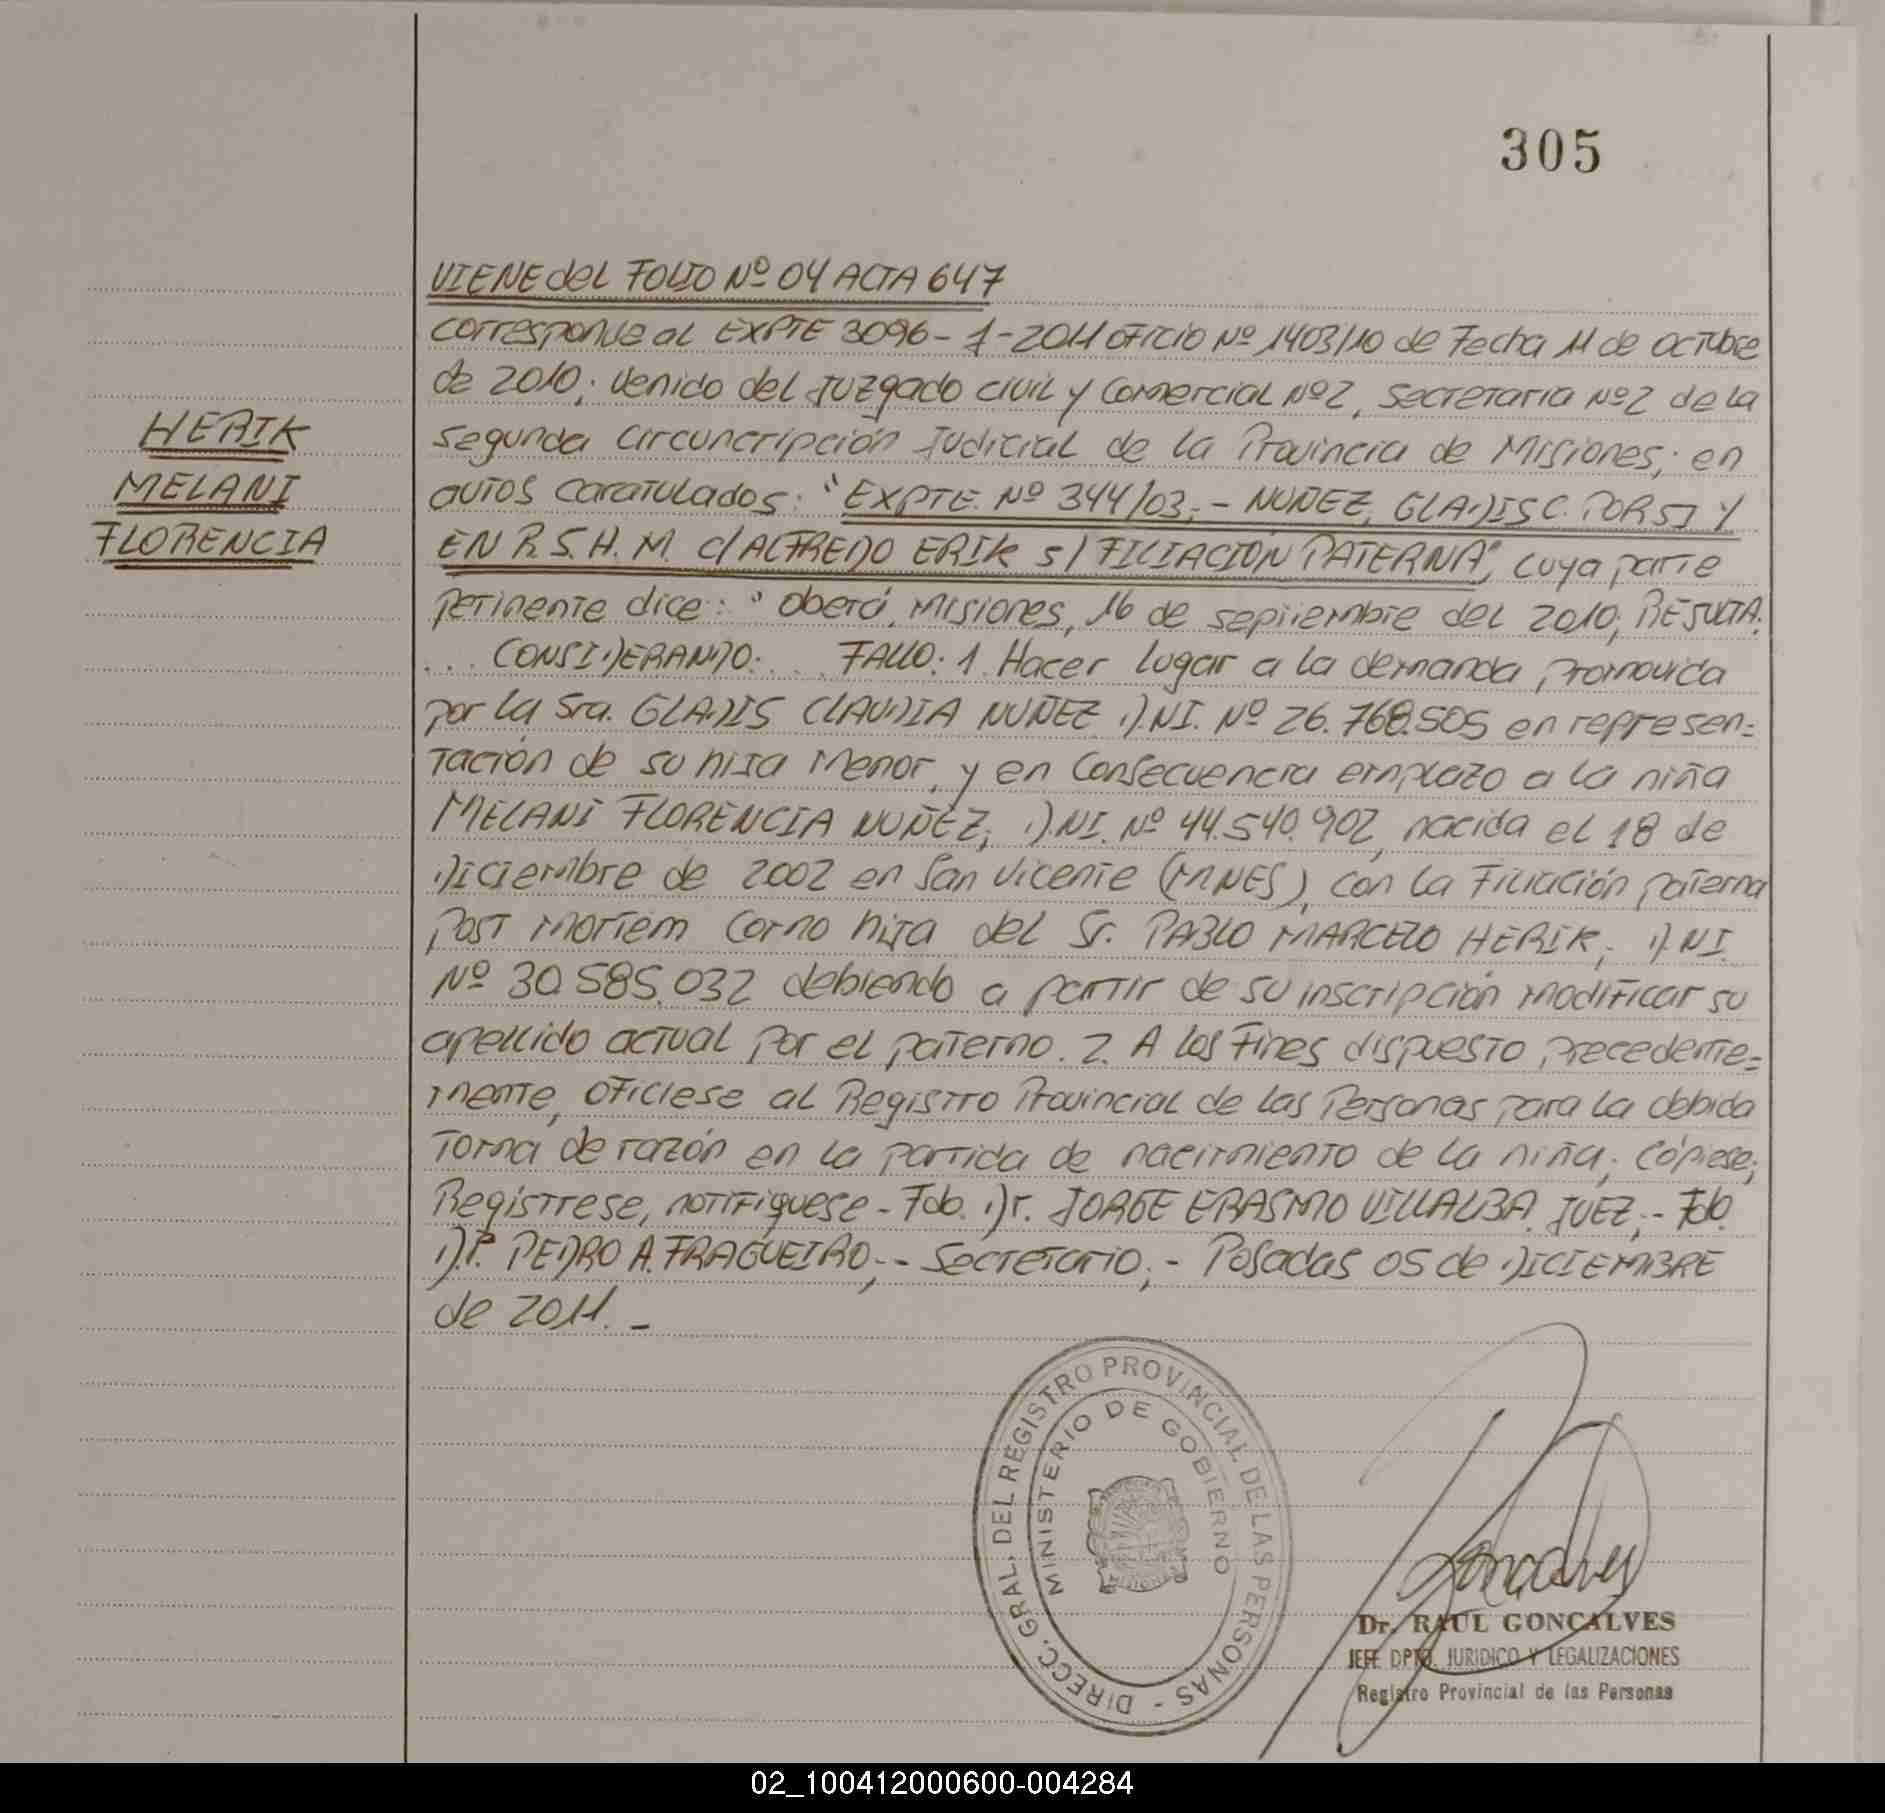 305
VIENE del FOLIO Nº 04 ACTA 647
corresponde al EXPTE 3096-1-2011 OFICIO Nº 1403/10 de Fecha 11 de octubre
de 2010; venido del Juzgado civil y Comercial Nº2, secretaria Nº2 de la
segunda circuncripción Judicial de la Provincia de Misiones; en
autos caratulados: "EXPTE. Nº 344/03.- NUÑEZ, GLADIS C. POR SI Y
EN R.S.H.M. c/ ALFREDO ERIK s/ FILIACIÓN PATERNA", cuya parte
pertinente dice: "Oberá, Misiones, 16 de septiembre del 2010; RESULTA:
... CONSIDERANDO: ... FALLO: 1. Hacer lugar a la demanda promovida
por la Sra. GLADIS CLAUDIA NUÑEZ D.NI. Nº 26.768.505 en represen-
tación de su hija menor, y en consecuencia emplazo a la niña
MELANI FLORENCIA NUÑEZ, D.NI. Nº 44.540.902, nacida el 18 de
Diciembre de 2002 en San Vicente (MNES), con la Filiación paterna
Post mortem como hija del Sr. PABLO MARCELO HERIK; D.NI.
Nº 30.585.032 debiendo a partir de su inscripción modificar su
apellido actual por el paterno. 2. A los fines dispuesto precedente-
mente, ofíciese al Registro Provincial de las Personas para la debida
toma de razón en la partida de nacimiento de la niña; Cópiese;
Regístrese, notifíquese - Fdo. Dr. JORGE ERASMO VILLALBA. JUEZ;- Fdo.
Dr. PEDRO A. FRAGUEIRO;- Secretario;- Posadas 05 de DICIEMBRE
de 2011.-
HERIK
MELANI
FLORENCIA
DIRECC. GRAL. DEL REGISTRO PROVINCIAL DE LAS PERSONAS -
MINISTERIO DE GOBIERNO
MISIONES
Goncalves
Dr. RAUL GONCALVES
JEFE DPTO. JURIDICO Y LEGALIZACIONES
Registro Provincial de las Personas
02_100412000600-004284